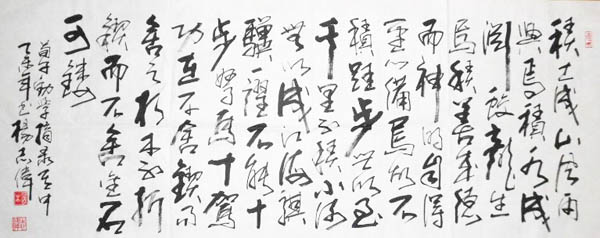 積土成山風雨
興焉積水成
渊蛟龍生
焉積善成德
而神明自得
聖心備焉故不
積跬步無以至
千里不積小流
無以成江海騏
驥一躍不能十
步駑馬十駕
功在不舍鍥而
舍之朽木不折
鍥而不舍金石
可鏤
荀子勸學摘录
乙未年 楊志偉